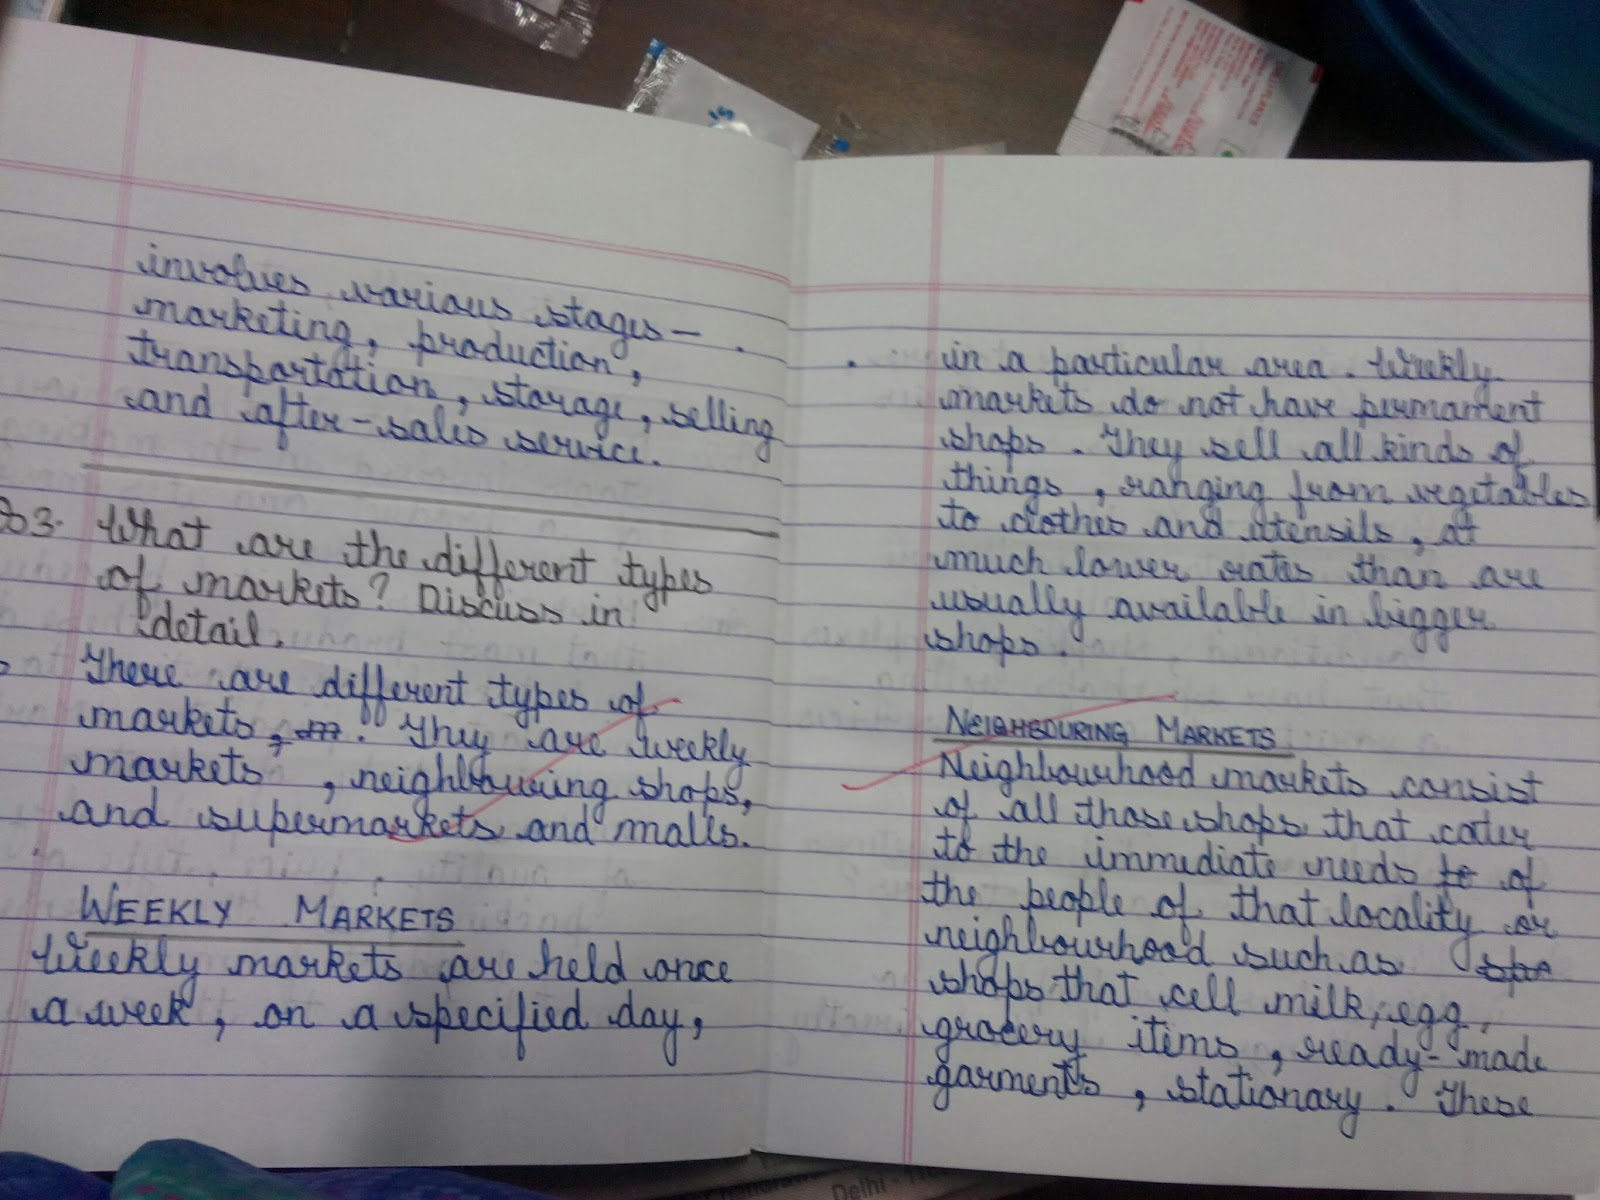 involves various stages —
marketing, production,
transportation, storage, selling
and after-sales service.
Q3. What are the different types
of markets? Discuss in
detail.
There are different types of
markets, . They are weekly
markets , neighbouring shops,
and supermarkets and malls.
WEEKLY MARKETS
Weekly markets are held once
a week, on a specified day,
in a particular area. Weekly
markets do not have permanent
shops. They sell all kinds of
things, ranging from vegetables
to clothes and utensils, at
much lower rates than are
usually available in bigger
shops.
NEIGHBOURING MARKETS
Neighbourhood markets consist
of all those shops that cater
to the immediate needs to of
the people of that locality or
neighbourhood such as
shops that cell milk, egg,
grocery items, ready-made
garments, stationary. These
Delhi -